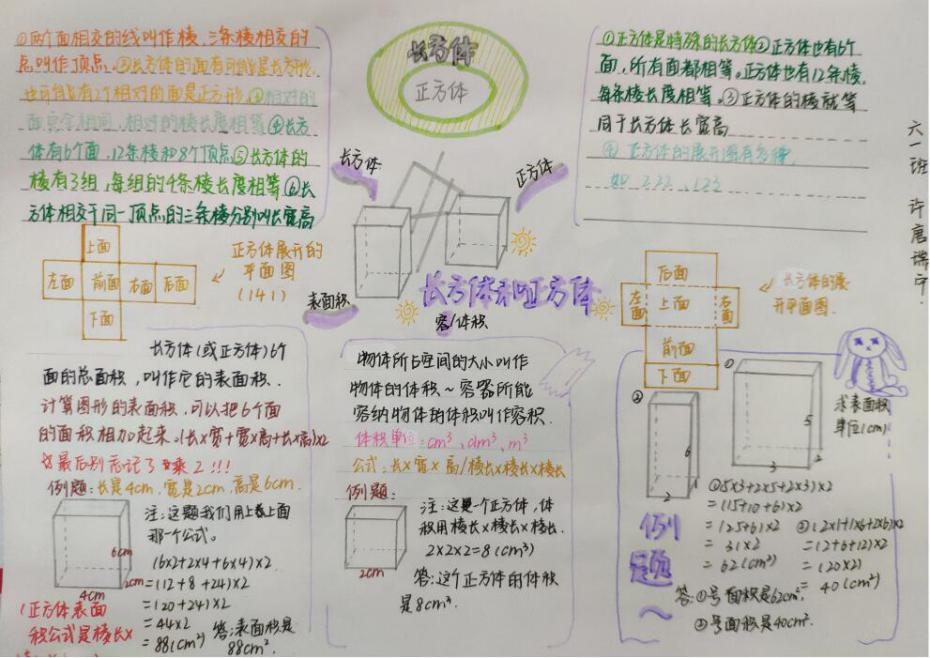 长方体
正方体
①两个面相交的线叫作棱,三条棱相交的
点叫作顶点。②长方体的面有可能是长方形,
也可能有2个相对的面是正方形。③相对的
面完全相同,相对的棱长度相等④长方
体有6个面,12条棱和8个顶点⑤长方体的
棱有3组,每组的4条棱长度相等⑥长
方体相交于同一顶点的三条棱分别叫长宽高
①正方体是特殊的长方体②正方体也有6个
面,所有面都相等。正方体也有12条棱,
每条棱长度相等。③正方体的棱就等
同于长方体长宽高
④正方体的展开图有多种,
如222、123
六一班
长方体
正方体
表面积
容/体积
长方体和正方体
上面
左面 前面 右面 后面
下面
正方体展开的
平面图
(141)
后面
左面 上面 右面
前面
下面
长方体的展
开平面图
长方体(或正方体)6个
面的总面积,叫作它的表面积.
计算图形的表面积,可以把6个面
的面积相加起来。(长×宽+宽×高+长×高)×2
最后别忘记了乘2!!!
例题:长是4cm,宽是2cm,高是6cm.
6cm
2cm
4cm
注:这题我们用上上面
那一个公式。
(6×2+2×4+6×4)×2
=(12+8+24)×2
=(20+24)×2
=44×2
=88(cm²) 答:表面积是
88cm².
(正方体表面
积公式是棱长×
物体所占空间的大小叫作
物体的体积~容器所能
容纳物体的体积叫作容积.
体积单位:cm³、dm³、m³
公式:长×宽×高/棱长×棱长×棱长
例题:
2cm
注:这是一个正方体,体
积用棱长×棱长×棱长.
2×2×2=8(cm³)
答:这个正方体的体积
是8cm³.
求表面积
单位(cm)
②
6
2
1
①
5
3
2
例
题
~
①(5×3+2×5+2×3)×2
=(15+10+6)×2
=(25+6)×2
=31×2
=62(cm²)
②(2×1+1×6+2×6)×2
=(2+6+12)×2
=(20×2)
=40(cm²)
答:①号面积是62cm².
②号面积是40cm².